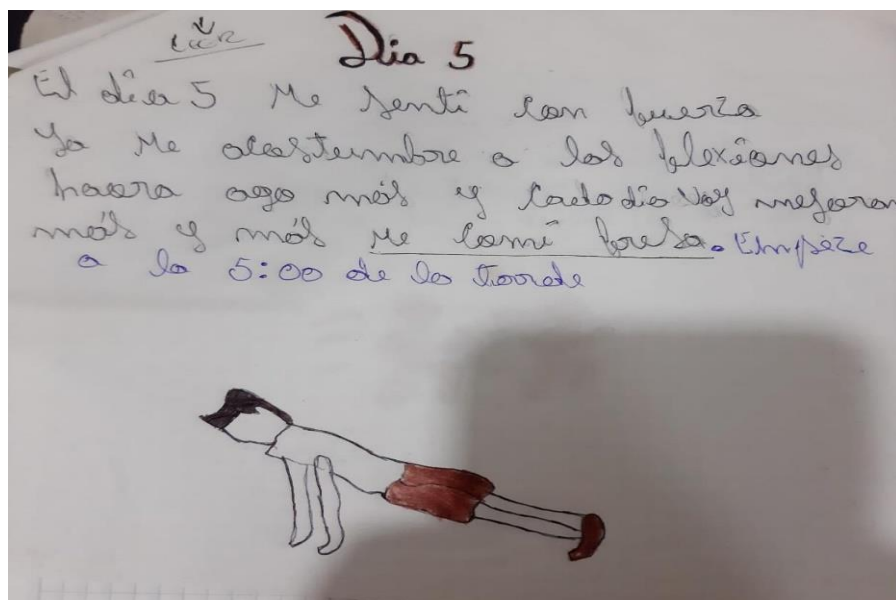 Dia 5
El dia 5 Me senti con fuerza
Ya Me acostumbre a las flexiones
haora ago más y cada dia voy mejoran
más y más Me comi fresa. Empeze
a la 5:00 de la tarde